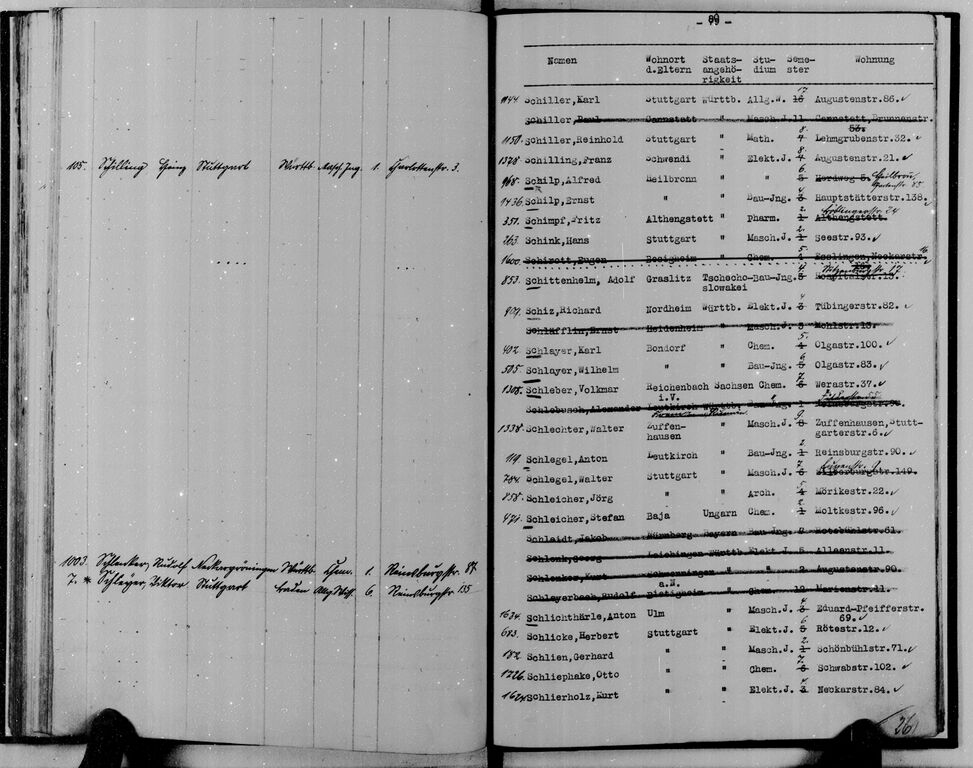 105. Schilling Heinz Stuttgart Württb. Masch. Ing. 1. Charlottenstr. 3.
1003. Schlenker, Rudolf Neckargröningen Württ. Chem. 1. Reinsburgstr. 87
7. * Schleyer, Viktor Stuttgart Baden Allg. Wiss. 6. Reinsburgstr 155
- 80 -
Namen Wohnort Staats- Stu- Seme- Wohnung
d.Eltern angehö- dium ster
rigkeit
1144 Schiller,Karl Stuttgart Württb. Allg.W. 17 Augustenstr.86.
Schiller,Paul Cannstatt " Masch.J.11 Cannstatt,Brunnenstr.
53.
1150. Schiller,Reinhold Stuttgart " Math. 8. 4 Lehmgrubenstr.32.
1378. Schilling,Franz Schwendi " Elekt.J. 8. 4 Augustenstr.21.
968. Schilp,Alfred Heilbronn " " 6. 5 Nordweg 5. Heilbronn
1436 Schilp,Ernst " " Bau-Jng. 4 3 Hauptstätterstr.138.
351. Schimpf,Fritz Althengstett " Pharm. 2. 1 Althengstett.
263. Schink,Hans Stuttgart " Masch.J. 2. 1 Seestr.93.
1600. Schirott,Eugen Besigheim " Chem. 5. 4 Esslingen,Neckarstr.
853. Schittenhelm, Adolf Graslitz Tschecho- Bau-Jng. 4. 3 Hospitalstr.13.
slowakei
909. Schiz,Richard Nordheim Württb. Elekt.J. 4 3 Tübingerstr.82.
Schläfflin,Ernst Heidenheim " Masch.J. 3 Mohlstr.13.
402. Schlayer,Karl Bondorf " Chem. 5. 4 Olgastr.100.
505. Schlayer,Wilhelm " " Bau-Jng. 6 5 Olgastr.83.
1308. Schleber,Volkmar Reichenbach Sachsen Chem. 7. 6 Werastr.37.
i.V.
Schlebusch,Alexander Leutkirch Württb. Bau-Jng. 1
1338. Schlechter,Walter Zuffen- " Masch.J. 9. 8 Zuffenhausen,Stutt-
hausen garterstr.6.
119 Schlegel,Anton Leutkirch " Bau-Jng. 2. 1 Reinsburgstr.90.
784. Schlegel,Walter Stuttgart " Masch.J. 7. 6 Silberburgstr.149.
858. Schleicher,Jörg " " Arch. 5 4 Mörikestr.22.
471. Schleicher,Stefan Baja Ungarn Chem. 2. 1 Moltkestr.96.
Schlaidt,Jakob Nürnberg Bayern Bau-Jng. 7 Rotebühlstr.61.
Schlenk,Georg Leichingen Württb. Elekt J 5 Alleenstr.11.
Schlenker,Kurt Schwenningen " " 2 Augustenstr.90.
a.N.
Schleyerbach,Rudolf Bietigheim " Chem. 12 Marienstr.41.
1634. Schlichthärle,Anton Ulm " Masch.J. 4. 3 Eduard-Pfeifferstr.
69.
683. Schlicke,Herbert Stuttgart " Elekt.J. 6 5 Rötestr.12.
182. Schlien,Gerhard " " Masch.J. 2. 1 Schönbühlstr.71.
1226. Schliephake,Otto " " Chem. 7. 6 Schwabstr.102.
1624 Schlierholz,Kurt " " Elekt.J. 4. 3 Neckarstr.84.
26